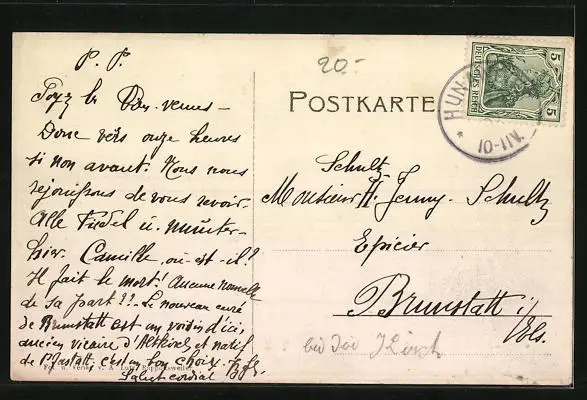 P. P.
Soyez les bien-venus –
Donc vers onze heures
si non avant. Nous nous
réjouissons de vous revoir.
Alle Fidel u. munter
hier. Camille, où est-il?
Il fait le mort! Aucune nouvelle
de sa part?? – Le nouveau curé
de Brunstatt est un voisin d'ici,
ancien vicaire d' et natif
de Mastatt. c'est un bon choix.
Salut cordial
20.-
POSTKARTE
DEUTSCHES REICH
5
5
HUN
10-11V.
Schultz
Monsieur H. Jenny-Schultz
Epicier
Brunstatt i/
Els.
bei der
Fot. u. Verlag v. A. Rappoltsweiler